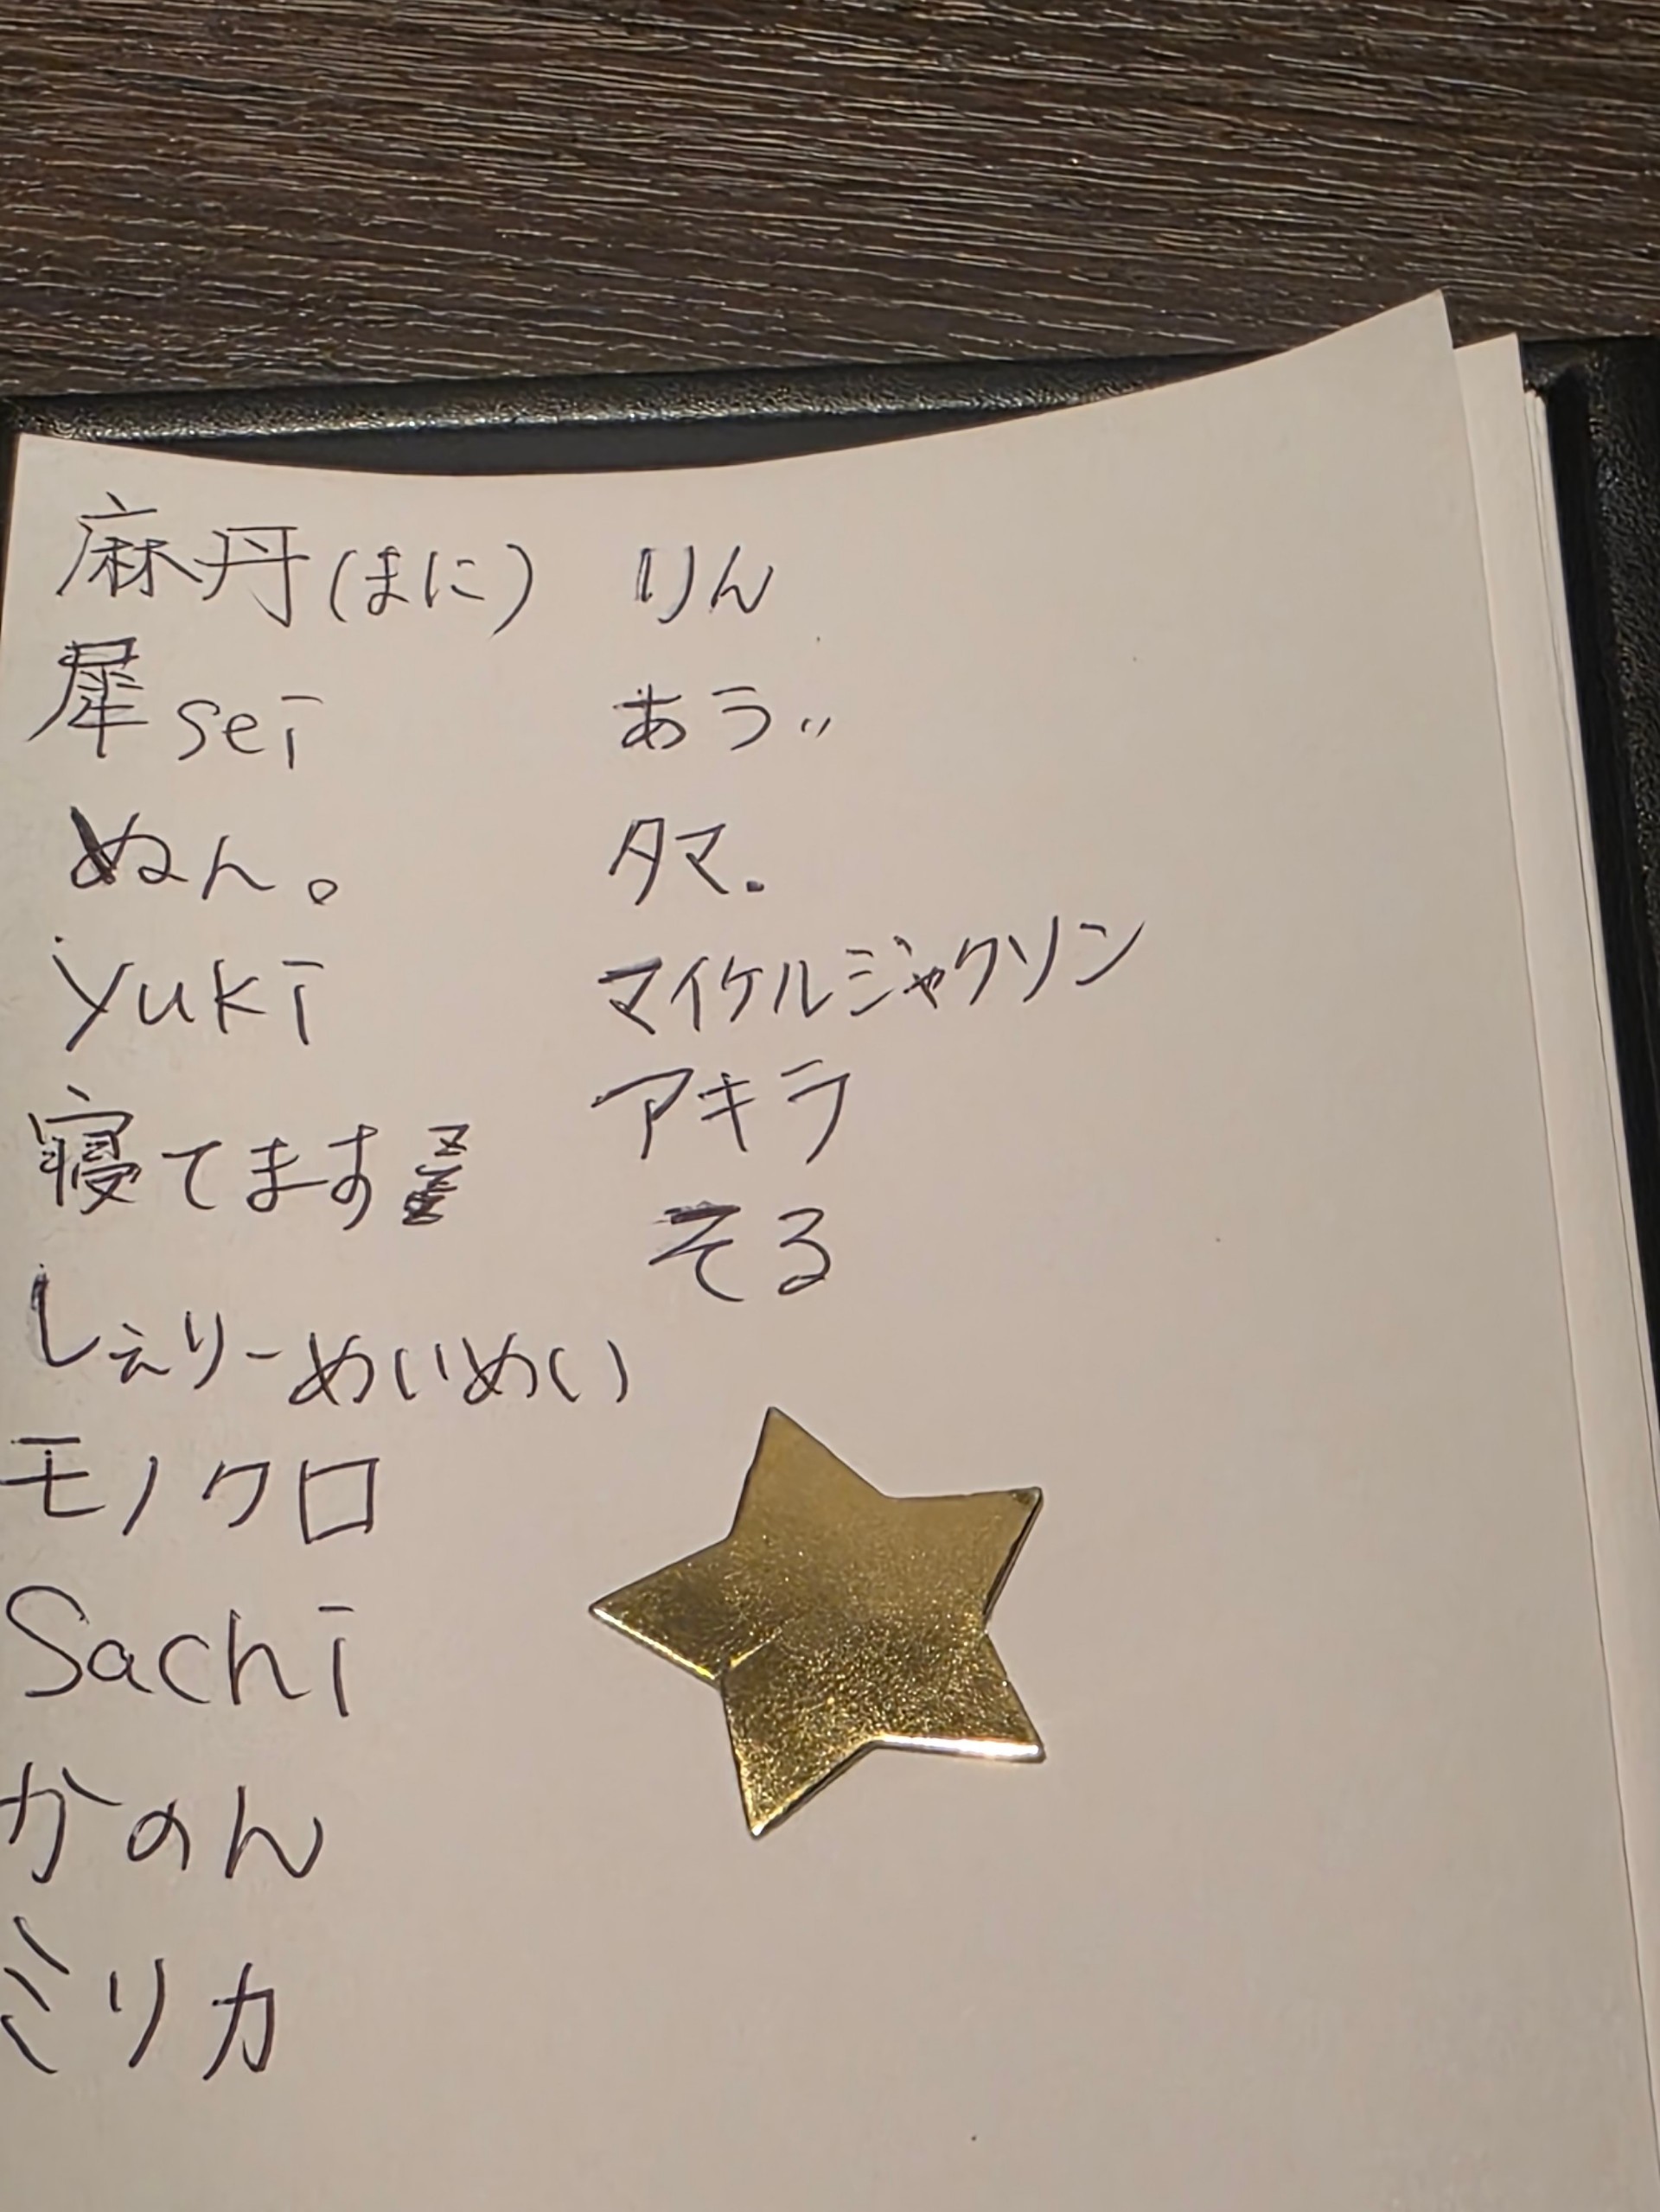 麻丹(まに)
犀sei
ぬん。
yuki
寝てますzzz
しぇりーめいめい
モノクロ
Sachi
かのん
ミリカ
りん
あう〃
タマ.
マイケルジャクソン
アキラ
そる